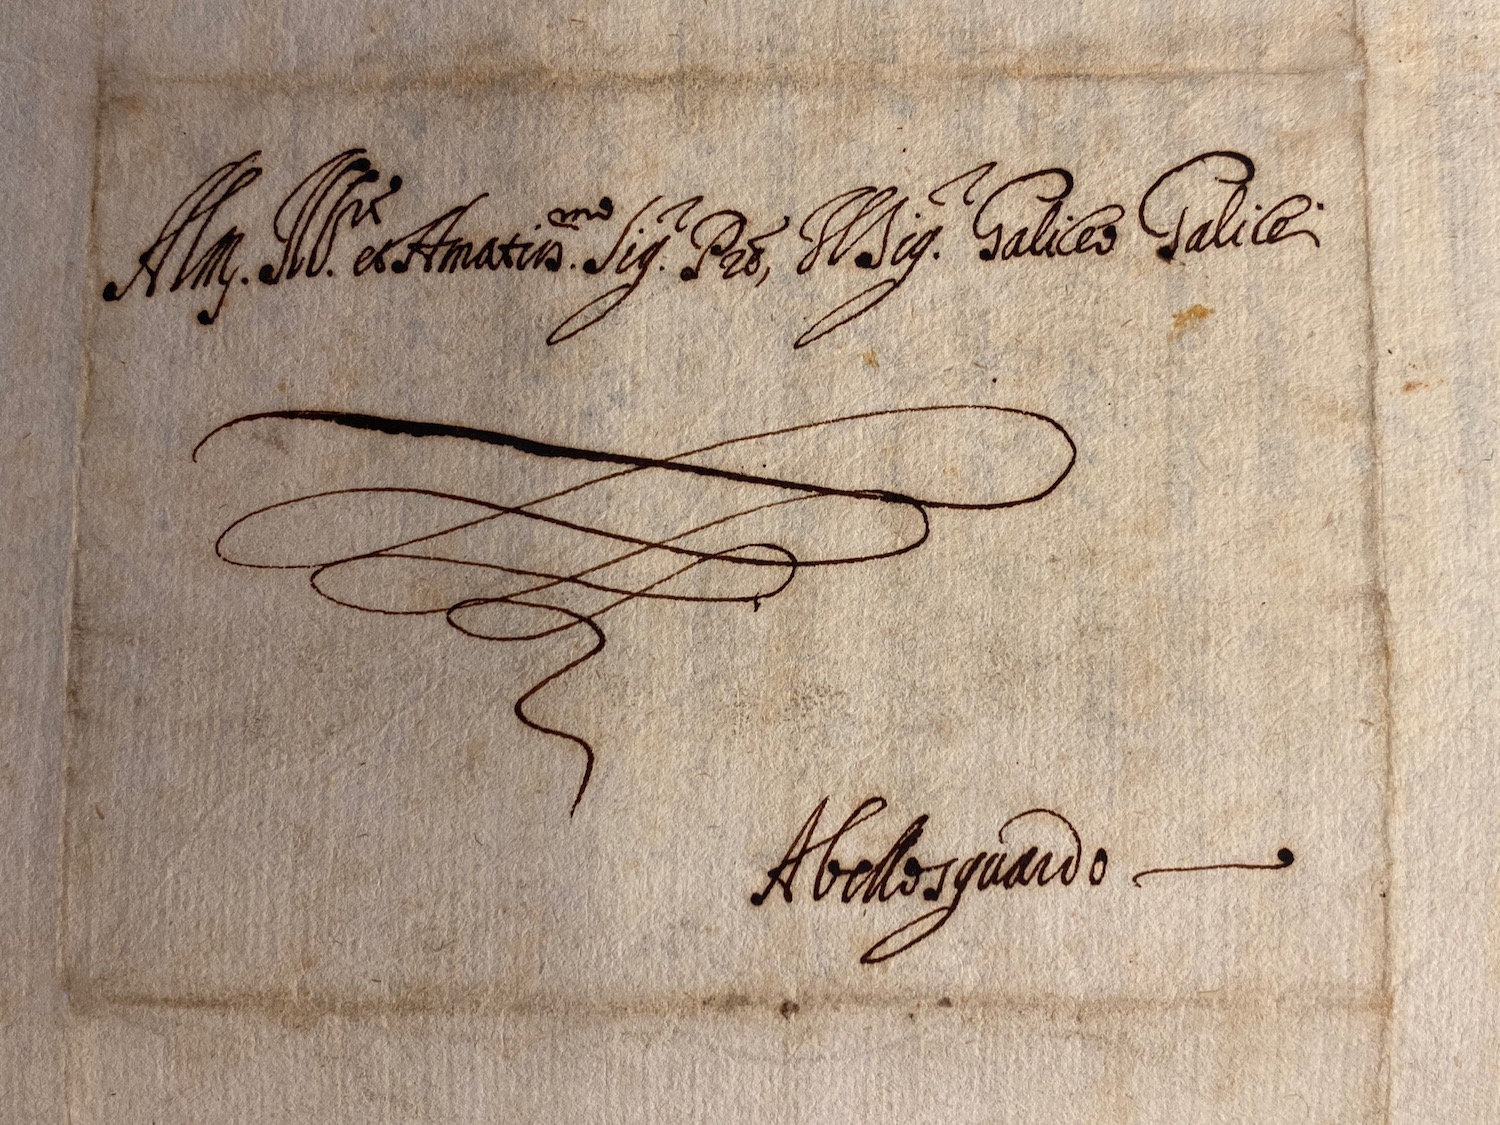 Al m. Ill.re et Amatiss.mo Sig.r P.re, Il Sig.r Galileo Galilei
A bellosguardo